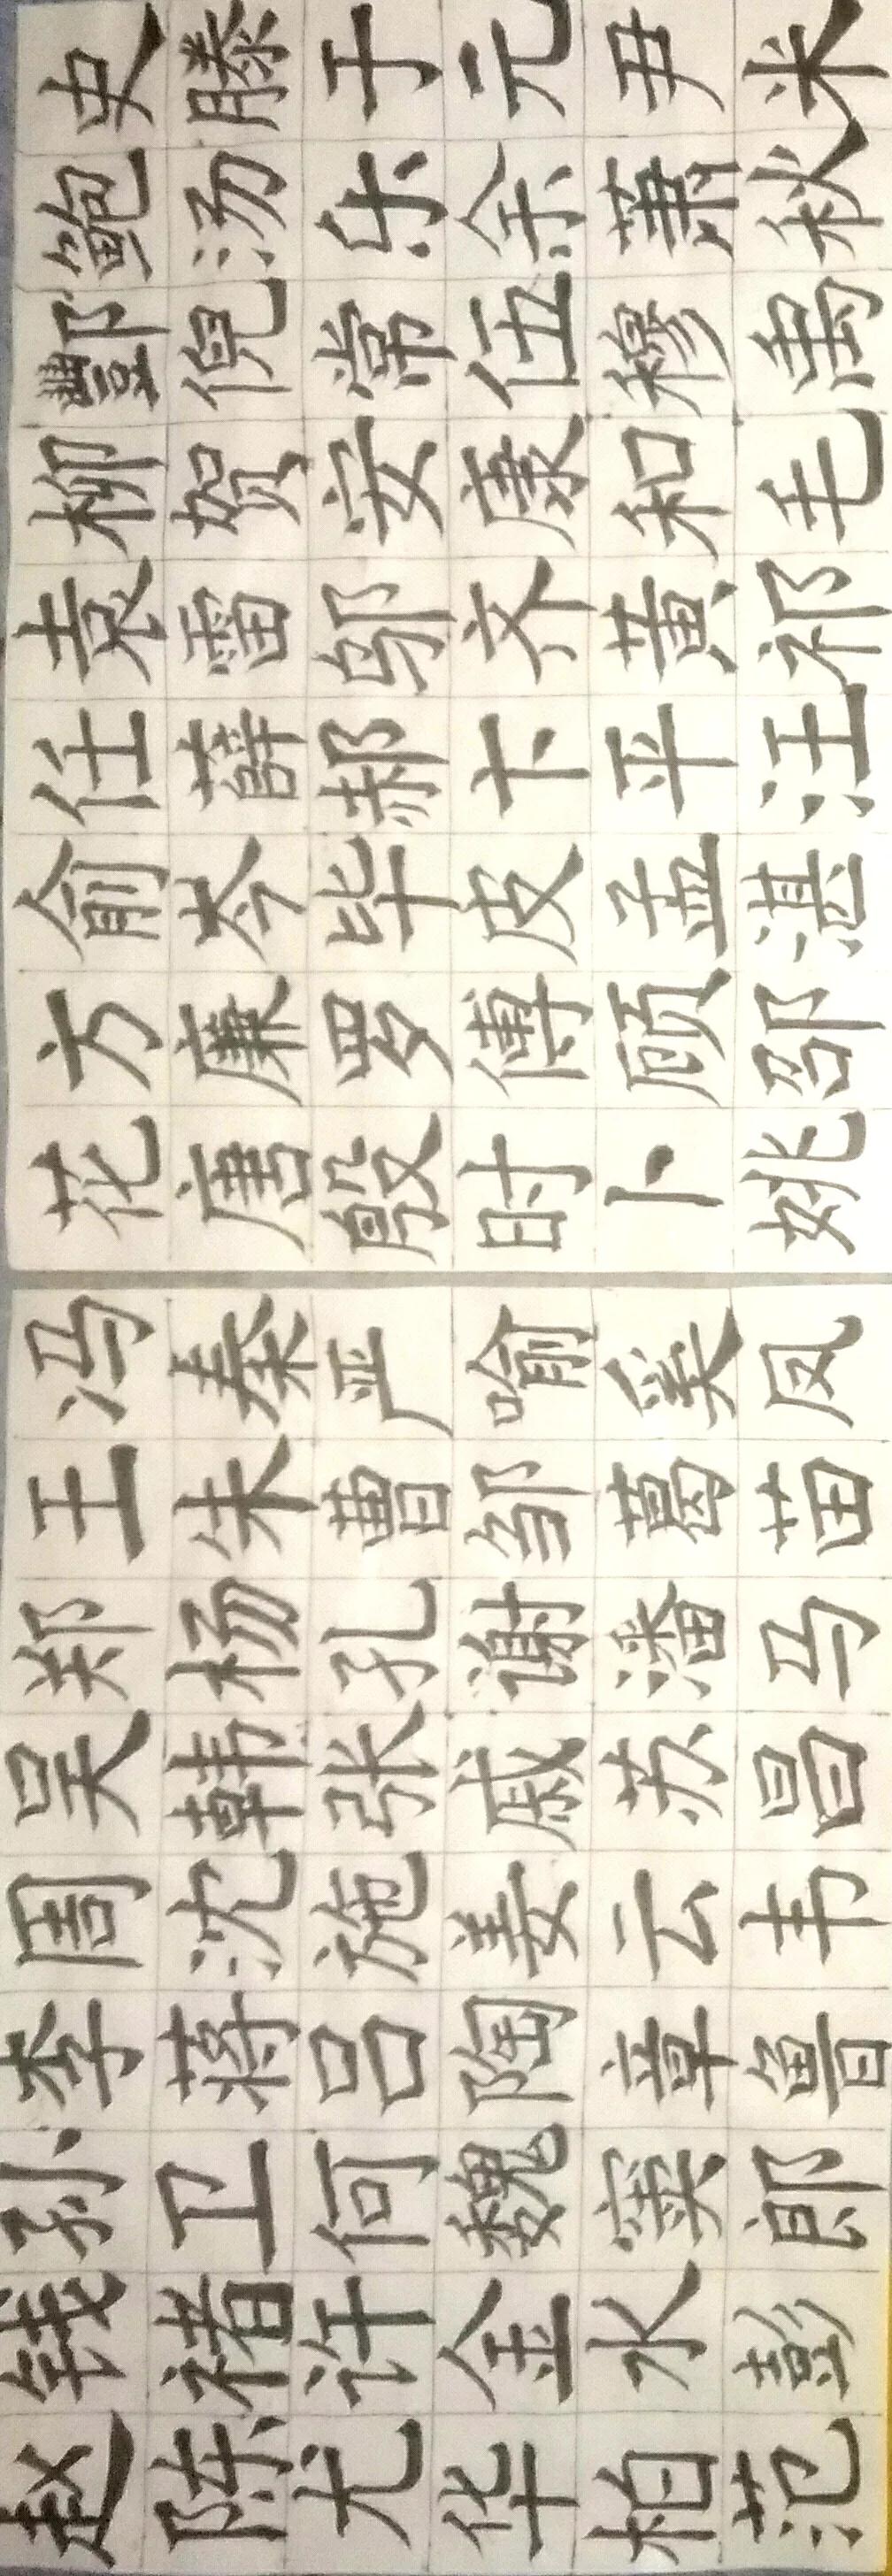 赵钱孙李周吴郑王冯
陈褚卫蒋沈韩杨朱秦
尤许何吕施张孔曹严
华金魏陶姜戚谢邹喻
柏水窦章云苏潘葛奚
范彭郎鲁韦昌马苗凤
花方俞任袁柳酆鲍史
唐廉岑薛雷贺倪汤滕
殷罗毕郝邬安常乐于
时傅皮卞齐康伍余元
卜顾孟平黄和穆萧尹
姚邵湛汪祁毛禹狄米